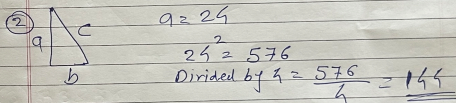 ② a c b
a = 24
24² = 576
Divided by 4 = 576/4 = 144